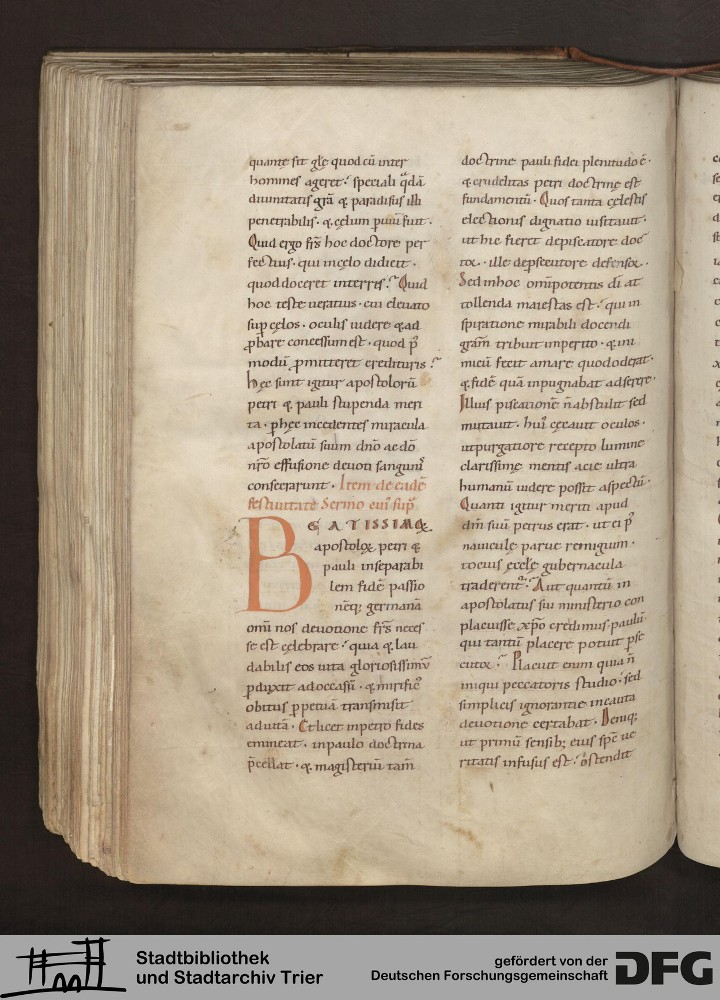 quantę sit glę quod cū inter
homines ageret. speciali q̄dā
diuinitatis grā & paradisus illi
penetrabilis. & cęlum puiū fuit.
Quid ergo frs̄ hoc doctore per
fectius. qui incęlo didicit.
quod doceret interris? Quid
hoc teste ueratius. cui eleuato
sup cęlos. oculis uidere & ad
ꝓbare concessum est. quod p̄
modū ꝓmitteret credituris?
hęc sunt igitur apostolorū
petri & pauli stupenda meri
ta. ꝑ hęc incedentes miracula
apostolatū suum dn̄o ac dō
nr̄o effusione deuoti sanguinꝰ
consecrarunt. Item de eadē
festiuitate Sermo eiuꝰ sup̄
BEATISSIMOꝝ
apostoloꝝ petri &
pauli inseparabi
lem fidē passio
nēq; germanā
omī nos deuotione frs̄ neces
se est cęlebrare. quia & lau
dabilis eos uita gloriosissimū
ꝑduxit ad occasū. & mirificꝰ
obitus ꝑpetuā transmisit
ad uitā. Et licet in petro fides
emineat. in paulo doctrina
p̄cellat. & magisteriū tam̄
doctrine pauli fidei plenitudo ē.
& crudelitas petri doctrinę est
fundamentū. Quos tanta cęlestis
electionis dignatio uisitauit.
ut hic fieret de piscatore doc
toꝝ. ille de ꝑsecutore defensoꝝ.
Sed in hoc omīpotentis dī at
tollenda maiestas est. qui in
spiratione mirabili docendi
grām tribuit imperito. & ini
micū fecit amare quod oderat.
& fidē quā impugnabat adserere.
Illius piscationē n̄ abstulit sed
mutauit. huiꝰ cęcauit oculos.
ut purgatiore recepto lumine
clarissimę mentis acie ultra
humanū uidere possit aspectū.
Quanti igitur meriti apud
dm̄ suū petrus erat. ut ei p̄
nauiculę paruę remigium.
totius ęcclę gubernacula
traderent̄. Aut quantū in
apostolatus sui ministerio con
placuisse xp̄o credimus paulū
qui tantū placere potuit ꝑse
cutoꝝ? Placuit enim quia n̄
iniqui peccatoris studio. sed
simplicis ignorantię incauta
deuotione certabat. Deniq;
ut primū sensib; eius spc̄ ue
ritatis infusus est. ostendit
Stadtbibliothek
und Stadtarchiv Trier
gefördert von der
Deutschen Forschungsgemeinschaft
DFG